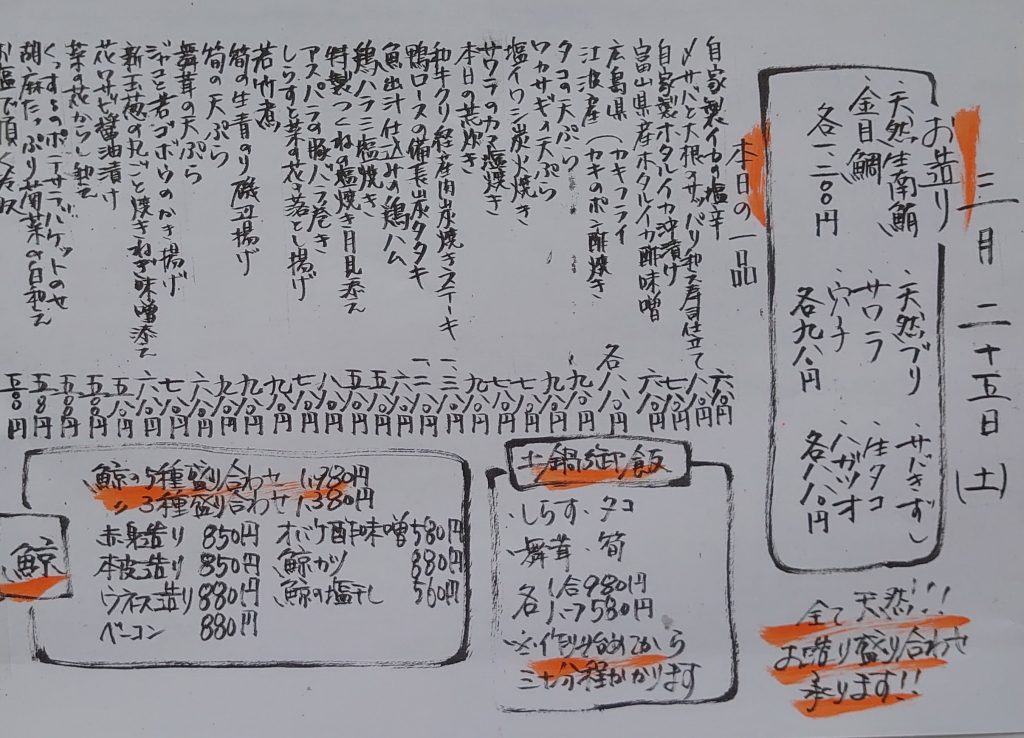 三月二十五日(土)
お造り
・天然生南鮪
・金目鯛
・天然ブリ
・サワラ
・穴子
各九八〇円
・サバきずし
・生タコ
・ハガツオ
各八八〇円
全て天然!!!
お造り盛り合わせ
承ります!!
本日の一品
自家製イカの塩辛 六八〇円
〆サバと大根のサッパリ和え寿司仕立て 八八〇円
自家製ホタルイカ沖漬け 七八〇円
富山県産ホタルイカ酢味噌 六八〇円
広島県(カキフライ
江波産(カキのポン酢焼き 各八八〇円
タコの天ぷら 九八〇円
ワカサギの天ぷら 九八〇円
塩イワシ炭火焼き 七八〇円
サワラのカマ塩焼き 七八〇円
本日の荒炊き 九八〇円
和牛クリ経産肉炭焼きステーキ 一、三八〇円
鴨ロースの備長炭タタキ 一、二八〇円
魚出汁仕込みの鶏ハム 六八〇円
鶏ハラミ塩焼き 五八〇円
特製つくねの塩焼き月見添え 五八〇円
アスパラの豚バラ巻き 八八〇円
しらすと菜の花き落とし揚げ 七八〇円
若竹煮 九八〇円
筍の生青のり磯辺揚げ 九八〇円
筍の天ぷら 九八〇円
舞茸の天ぷら 六八〇円
ジャコと若ゴボウのかき揚げ 七八〇円
新玉葱の丸ごと焼きねぎ味噌添え 六八〇円
花ワサビ醤油漬け 五八〇円
菜の花からし和え 五八〇円
くっするのポテサラバケットのせ 五八〇円
胡麻たっぷり菊菜の白和え 五八〇円
お塩で頂く冷奴 五〇〇円
土鍋御飯
・しらす・タコ
・舞茸・筍
各1合980円
各ハーフ580円
※作り始めてから
三十分程かかります
鯨
鯨の5種盛り合わせ 1,980円
〃3種盛り合わせ 1,380円
赤身造り 850円 オバケ酢味噌 580円
本皮造り 850円 鯨カツ 880円
ウネス造り 880円 鯨の塩干し 560円
ベーコン 880円